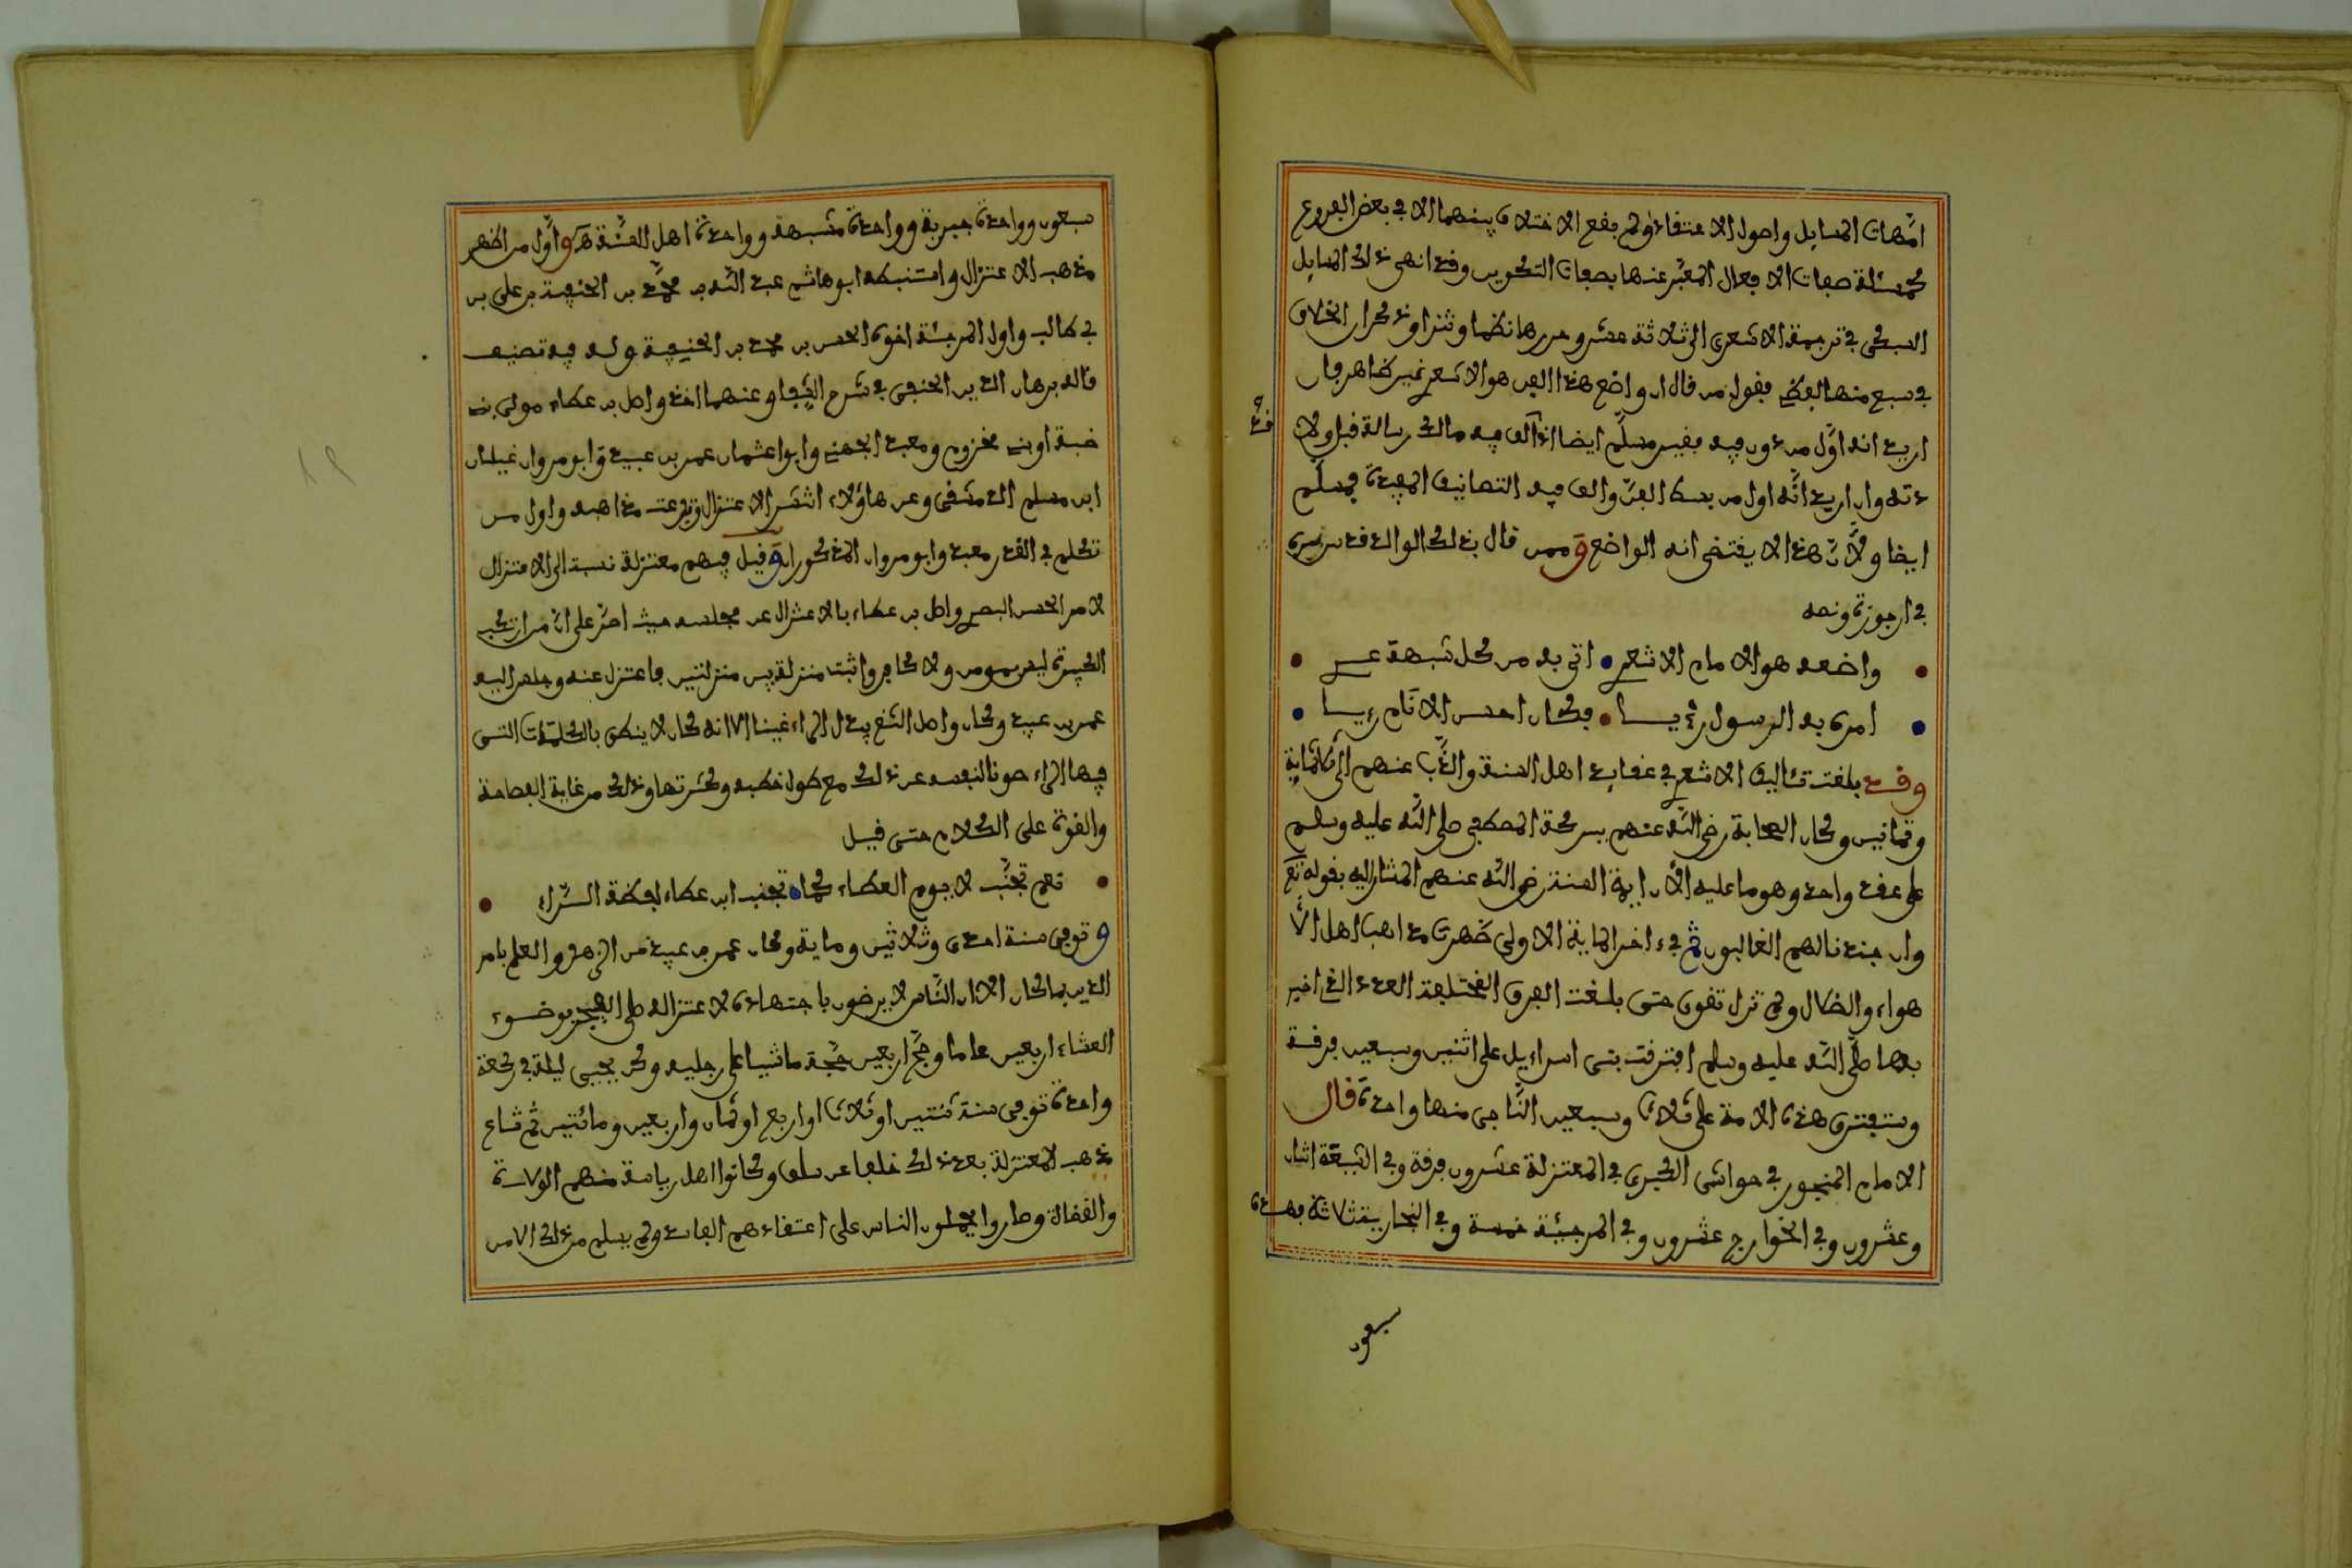 امهات المسايل واصول الاعتقاد ولم يقع الاختلاف بينهما الا في بعض الفروع
كمسئلة صفات الافعال المعبر عنها بصفات التكوين وقد انهى ذلك المسايل
السبكي في ترجمة الاشعري الى ثلاثة عشر وحررها نظما ونثرا وذكر ان الخلاف
في سبع منها لفظي فقول من قال ان واضع هذا الفن هو الاشعري غير ظاهر فان
اريد انه اول من دون فيه فغير مسلم ايضا اذ الف فيه مالك رسالة قبل ولا
قد
دته وان اريد انه اول من بسط الفن والف فيه التصانيف المفيدة فمسلم
ايضا ولاكن هذا لا يقتضي انه الواضع وممن قال بذلك الوالد قدس سره
في ارجوزته ونصه
واضعه هو الامام الاشعري اتى به من كل شبهة عري
امره به الرسول رؤيا فكان احسن الانام رييا
وقد بلغت تئاليف الاشعري في عقايد اهل السنة والذب عنهم الى ثلاثماية
وثمانين وكان الصحابة رضي الله عنهم ببركة المصطفى صلى الله عليه وسلم
على عقد واحد وهو ما عليه الأن ايمة السنة رضي الله عنهم المشار اليه بقوله تع
وان جندنا لهم الغالبون ثم في ءاخر الماية الاولى ظهرت مذاهب اهل الأ
هواء والضلال ولم تزل تقوى حتى بلغت الفرق المختلفة العدد الذي اخبر
بها صلى الله عليه وسلم افترقت بني اسراءيل على اثنين وسبعين فرقة
وستفترق هذه الامة على ثلاث وسبعين الناجي منها واحدة قال
الامام المنجور في حواشي الكبرى في المعتزلة عشرون فرقة وفي الشيعة اثنان
وعشرون وفي الخوارج عشرون وفي المرجئة خمسة وفي النجارية ثلاثة فهذه
سبعون
سبعون وواحدة جبرية وواحدة مشبهة وواحدة اهل السنة هـ واول من اظهر
مذهب الاعتزال واستنبطه ابو هاشم عبد الله بن محمد بن الحنفية بن علي بن
ابي طالب واول المرجئة اخوه الحسن بن محمد بن الحنفية وله فيه تصنيف
قاله برهان الدين الحلبي في شرح الشفا وعنهما اخذ واصل بن عطاء مولى بني
ضبة او بني مخزوم ومعبد الجهني وابوا عثمان عمر بن عبيد وابو مروان غيلان
ابن مسلم الدمشقي وعن هاؤلاء انتشر الاعتزال وتفرعت مذاهبه واول من
تكلم في القدر معبد وابو مروان المذكوران وقيل فيهم معتزلة نسبة الى الاعتزال
لامر الحسن البصري واصل بن عطاء بالاعتزال عن مجلسه حيث اصر على ان مرتكب
الكبيرة ليس بمومن ولا كافر واثبت منزلة بين منزلتين فاعتزل عنه وجلس اليه
عمر بن عبيد وكان واصل الثغ يبدل الراء غينا الا انه كان لا ينطق بالكلمات التي
فيها الراء صونا لنفسه عن ذلك مع طول خطبه وكثرتها وذلك من غاية الفصاحة
والقوة على الكلام حتى قيل
نعم تجنب لا يوم العطاء كما تجنب ابن عطاء لفظة الراء
وتوفي سنة احدى وثلاثين وماية وكان عمر بن عبيد من الزهد والعلم بامر
الدين بمكان الا ان الناس لا يرضون باجتهاده لاعتزاله صلى الفجر بوضوء
العشاء اربعين عاما وحج اربعين حجة ماشيا على رجليه وكان يحيي ليلة في ركعة
واحدة توفي سنة ثنتين او ثلاث او اربع او ثمان واربعين ومائتين ثم شاع
مذهب المعتزلة بعد ذلك خلفا عن سلف وكانوا اهل رياسة منهم الولاة
والقضاة وصاروا يحملون الناس على اعتقادهم الفاسد ولم يسلم من ذلك الامن